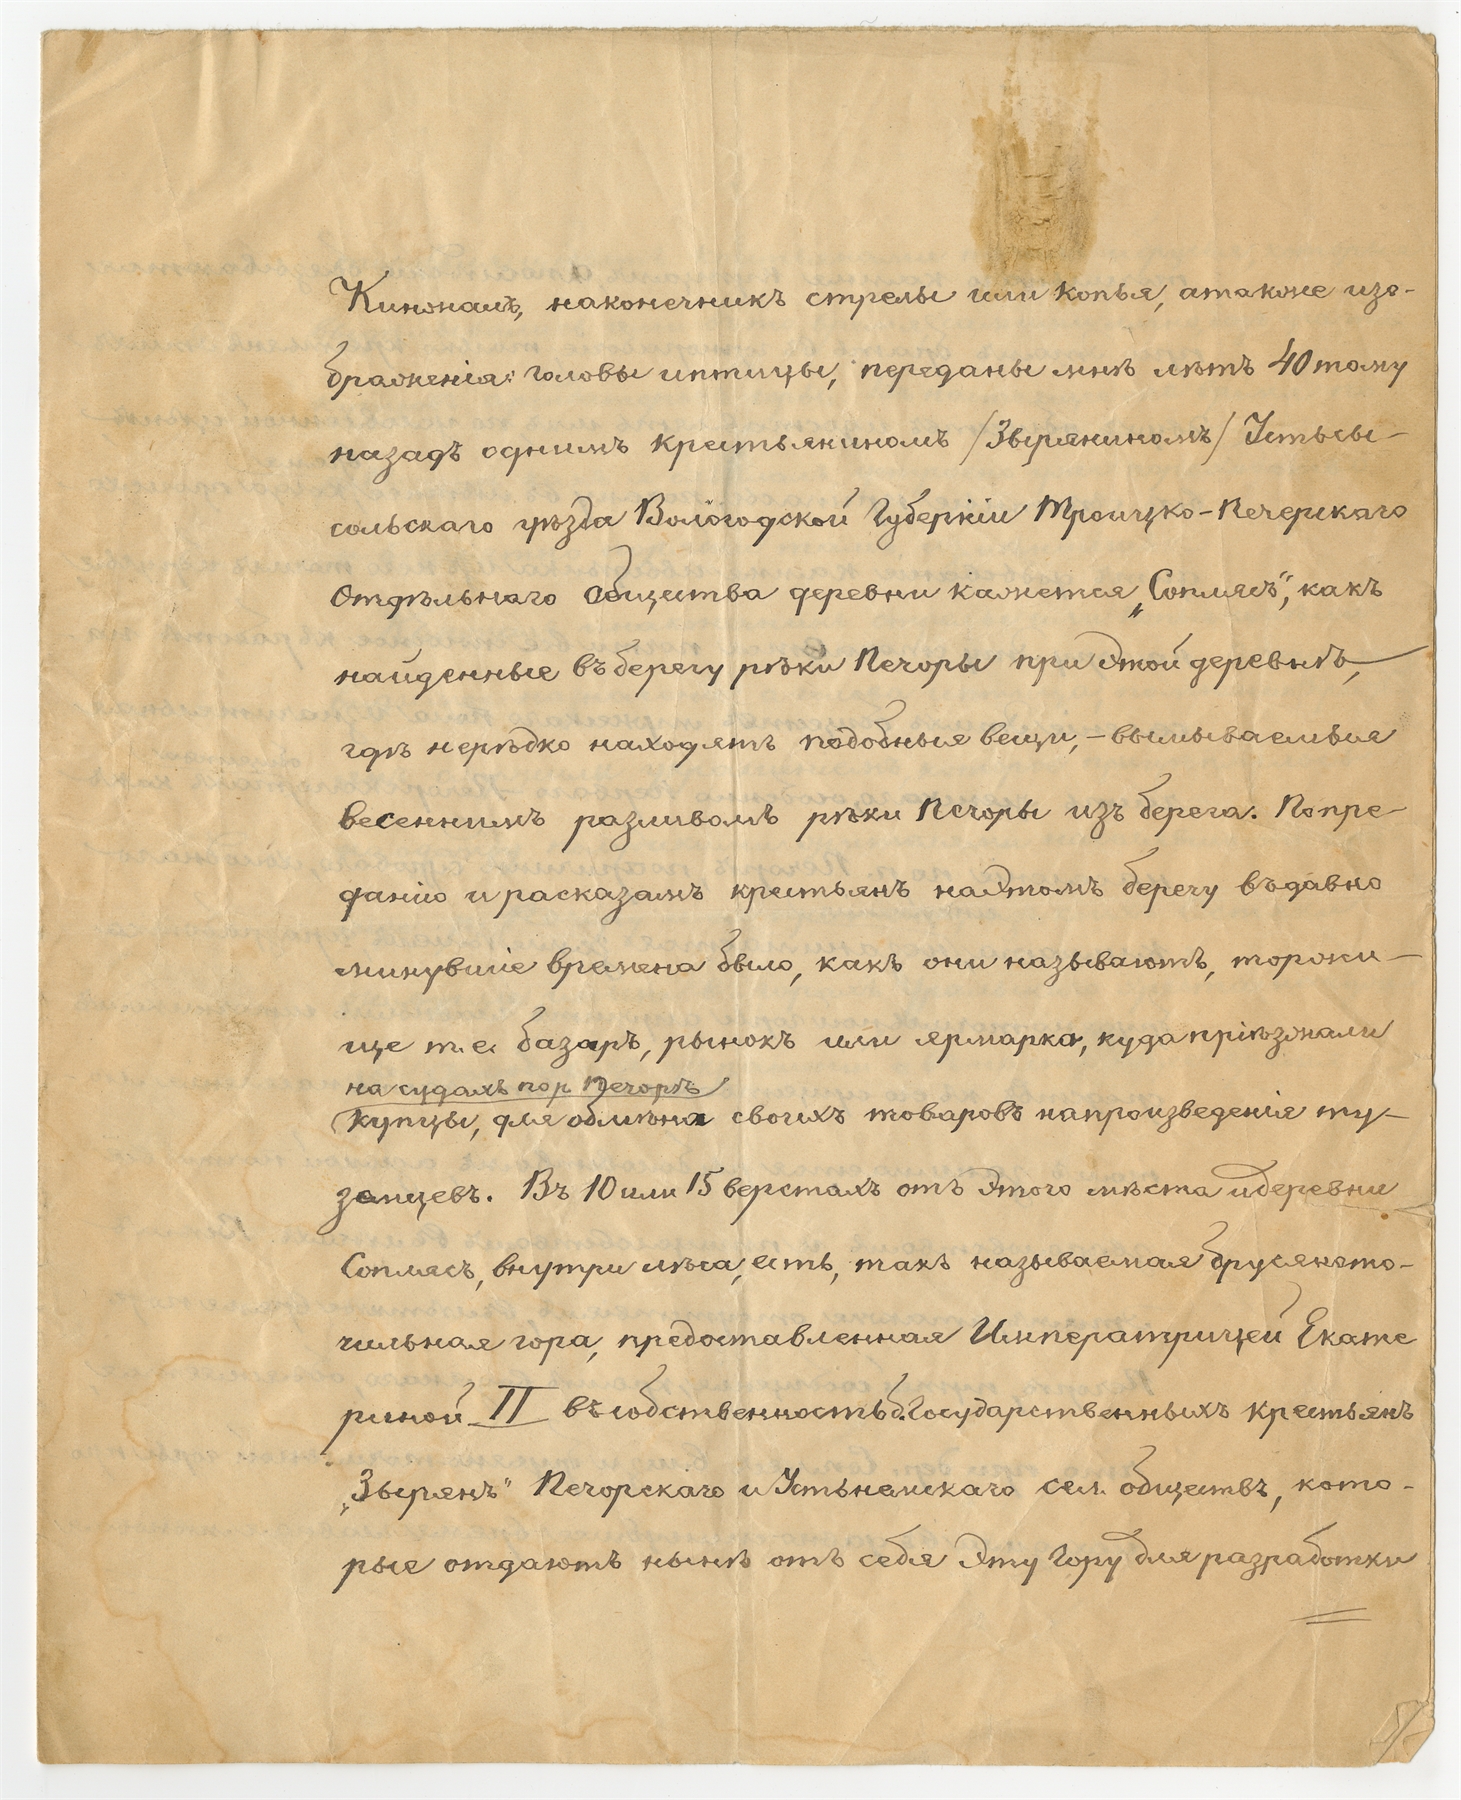 Кинжалъ, наконечникъ стрелы или копья, атакже изо-
браженія: головы иптицы, переданы мнѣ лѣтъ 40 тому
назадъ однимъ крестьяниномъ /Зыряниномъ/ Устьсы-
сольскаго уѣзда Вологодской Губерніи Троицко-Печерскаго
Отдѣльнаго Общества деревни кажется „Соплясъ“, какъ
найденные въ берегу рѣки Печоры при этой деревнѣ,
гдѣ нерѣдко находятъ подобныя вещи, – вымываемыя
весеннимъ разливомъ рѣки Печоры изъ берега. Попре-
данію и расказамъ крестьянъ наэтомъ берегу въ давно
минувшіе времена было, какъ они называютъ, торжи-
ще т.е. базаръ, рынокъ или ярмарка, куда пріѣзжали
на судахъ по р. Печорѣ
купцы, для обмѣна своихъ товаровъ напроизведенія ту-
земцевъ. Въ 10 или 15 верстахъ отъ этого мѣста идеревни
Соплясъ, внутри лѣса, есть, такъ называемая брусяното-
чильная гора, предоставленная Императрицей Екате
риной II въ собственность б. Государственныхъ крестьянъ
„Зырянъ“ Печорскаго и Устьнемскаго сел. обществъ, кото-
рые отдаютъ нынѣ отъ себя эту гору для разработки